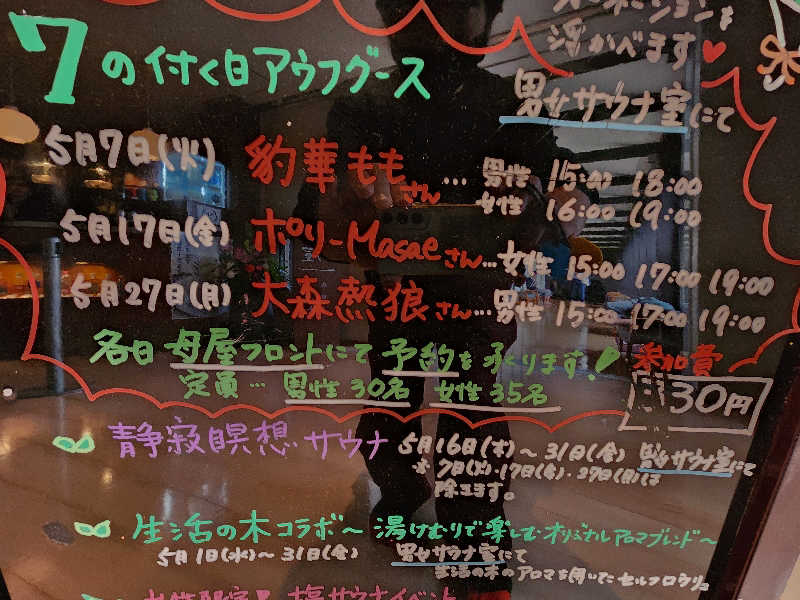 浮かべます♥
7の付く日アウフグース
男女サウナ室にて
5月7日(火) 豹華ももさん… 男性 15:00 18:00
女性 16:00 19:00
5月17日(金) ポリーMasaeさん…女性 15:00 17:00 19:00
5月27日(月) 大森熱狼さん…男性 15:00 17:00 19:00
各日 母屋フロントにて 予約を承ります! 参加費
定員… 男性30名 女性35名 30円
静寂瞑想サウナ 5月16日(木)~31日(金) 男女サウナ室にて
※7日(火)・17日(金)・27日(月)は
除きます。
生活の木コラボ~湯けむりで楽しむオリジナルアロマブレンド~
5月1日(水)~31日(金) 男女サウナ室にて
生活の木のアロマを用いたセルフロウリュ。
塩サウナイベント